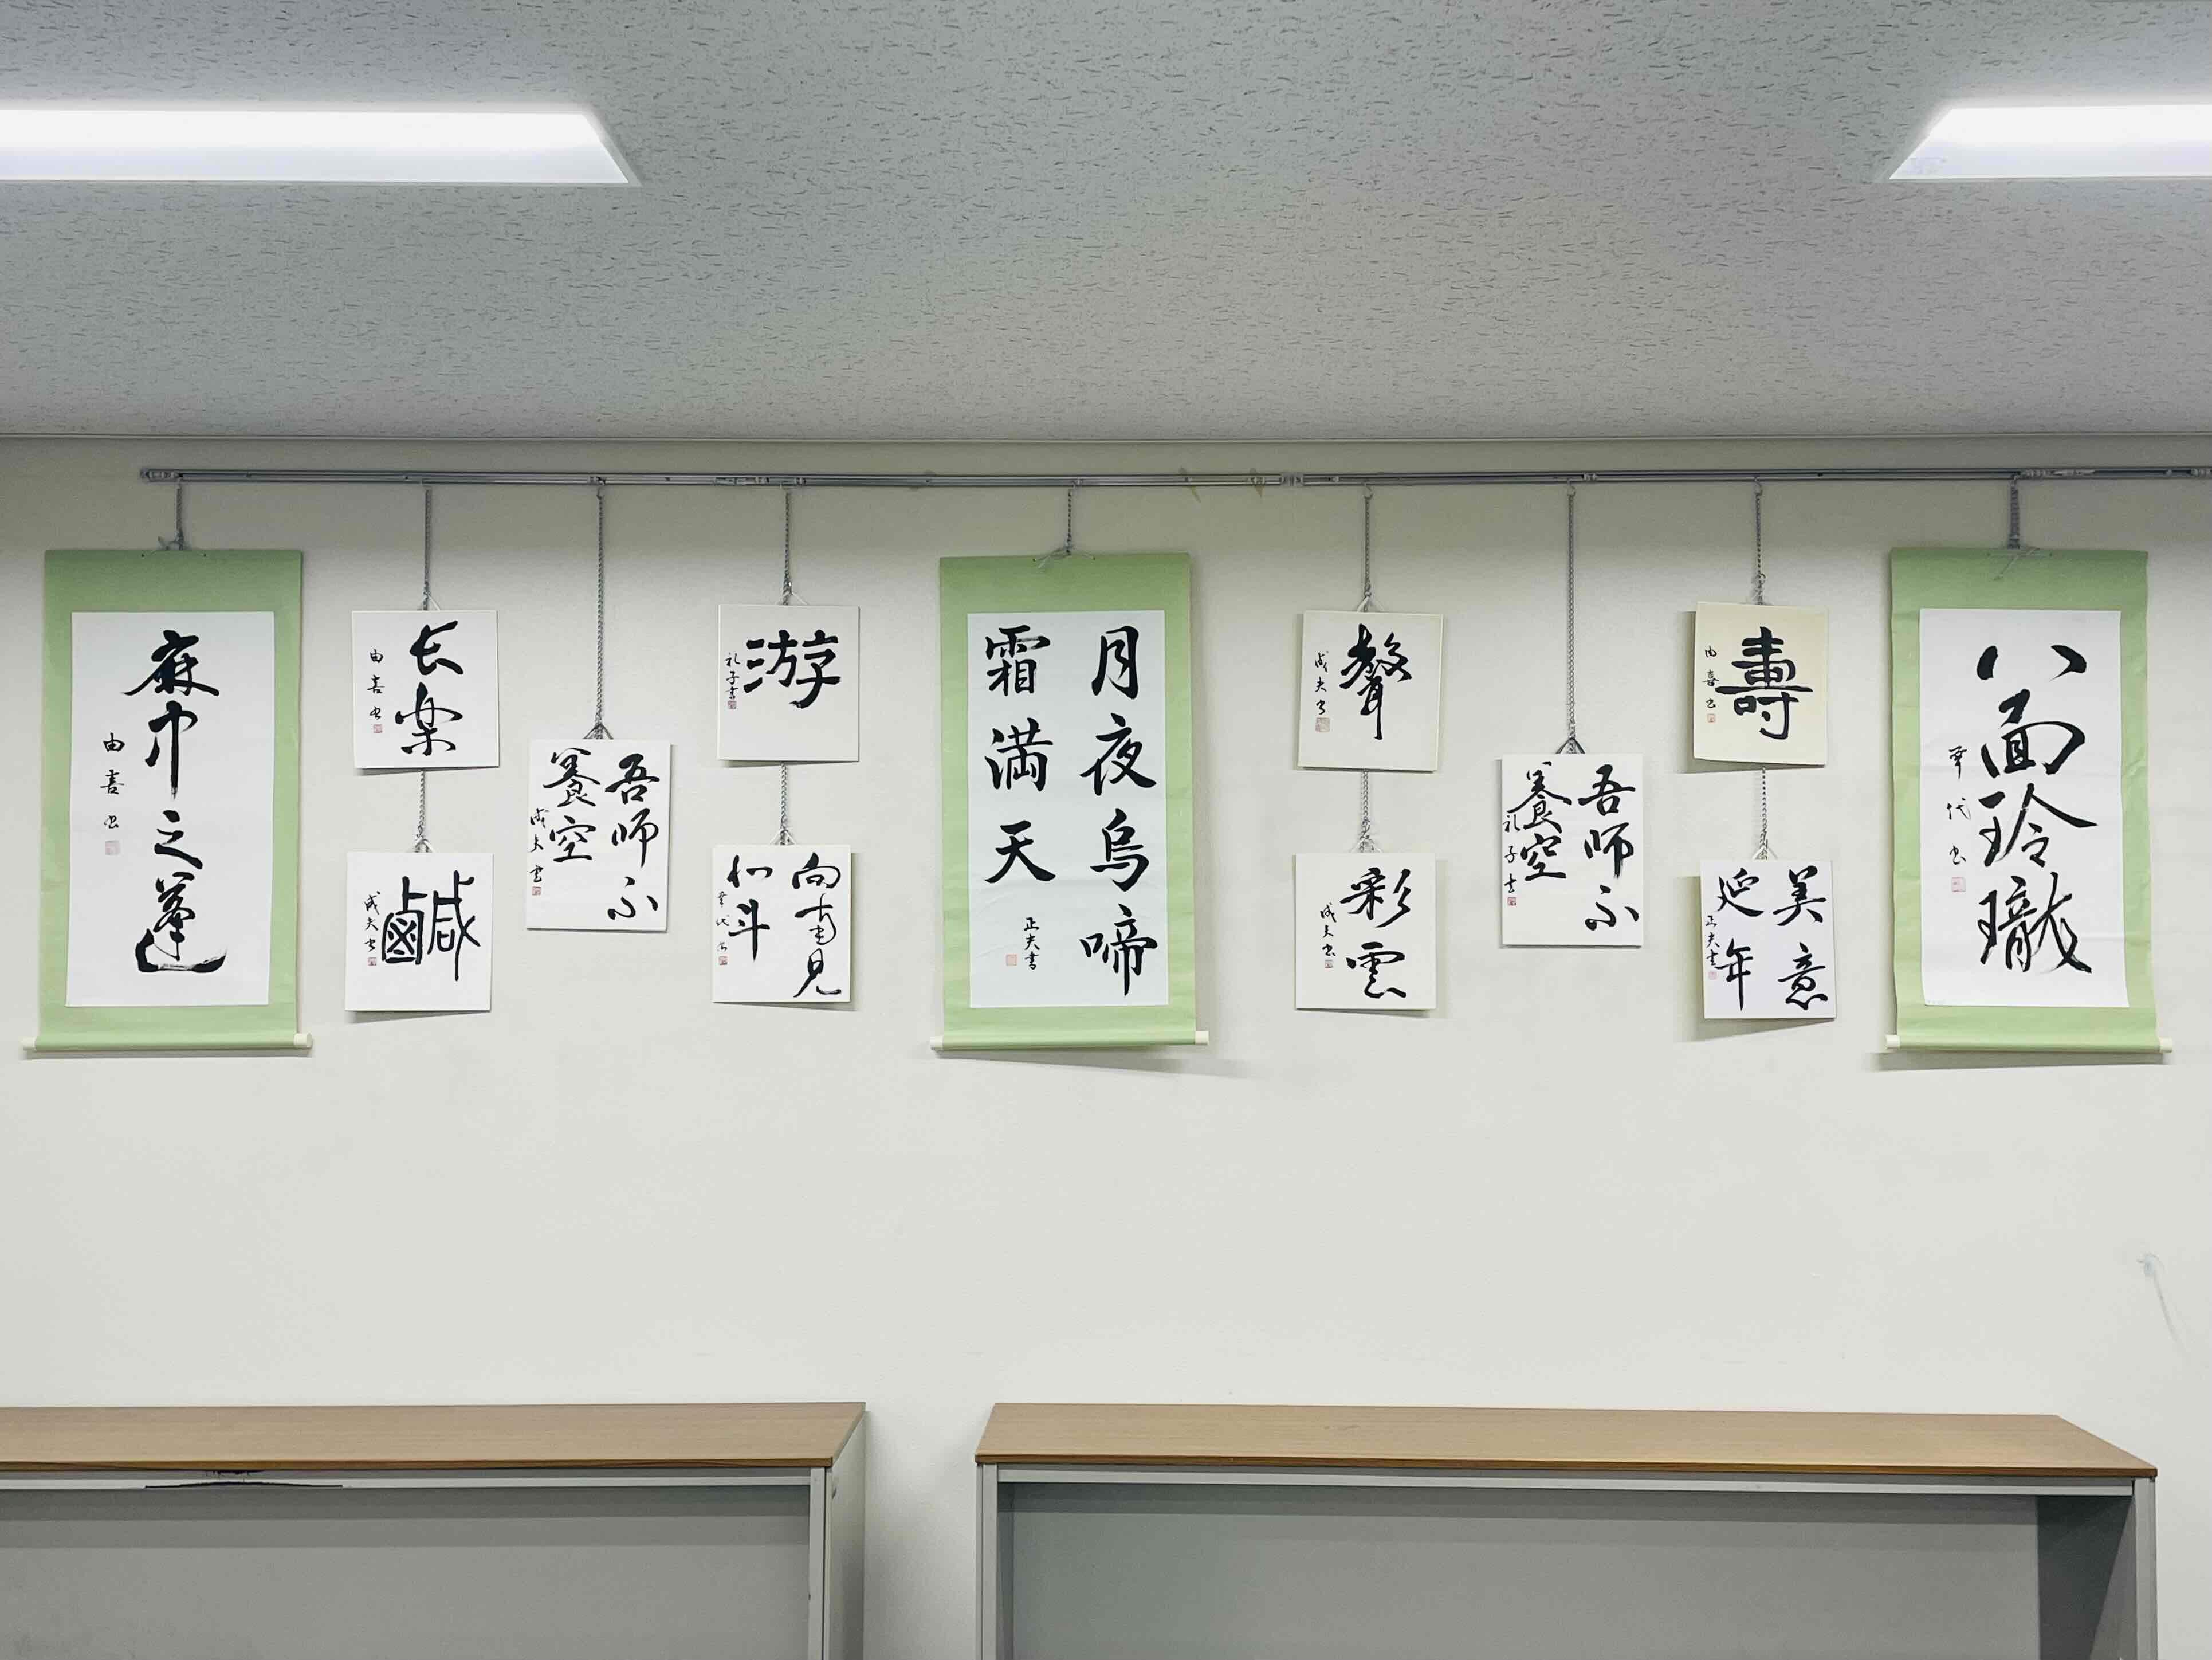 麻中之蓬
由喜書
长楽
由喜書
鹹
成夫書
吾師不
養空
成夫書
游
礼子書
向南見
北斗
幸代書
月夜烏啼
霜満天
正夫書
聲
成夫書
彩雲
成夫書
吾師不
養空
礼子書
壽
由喜書
美意
延年
正夫書
八面玲瓏
幸代書